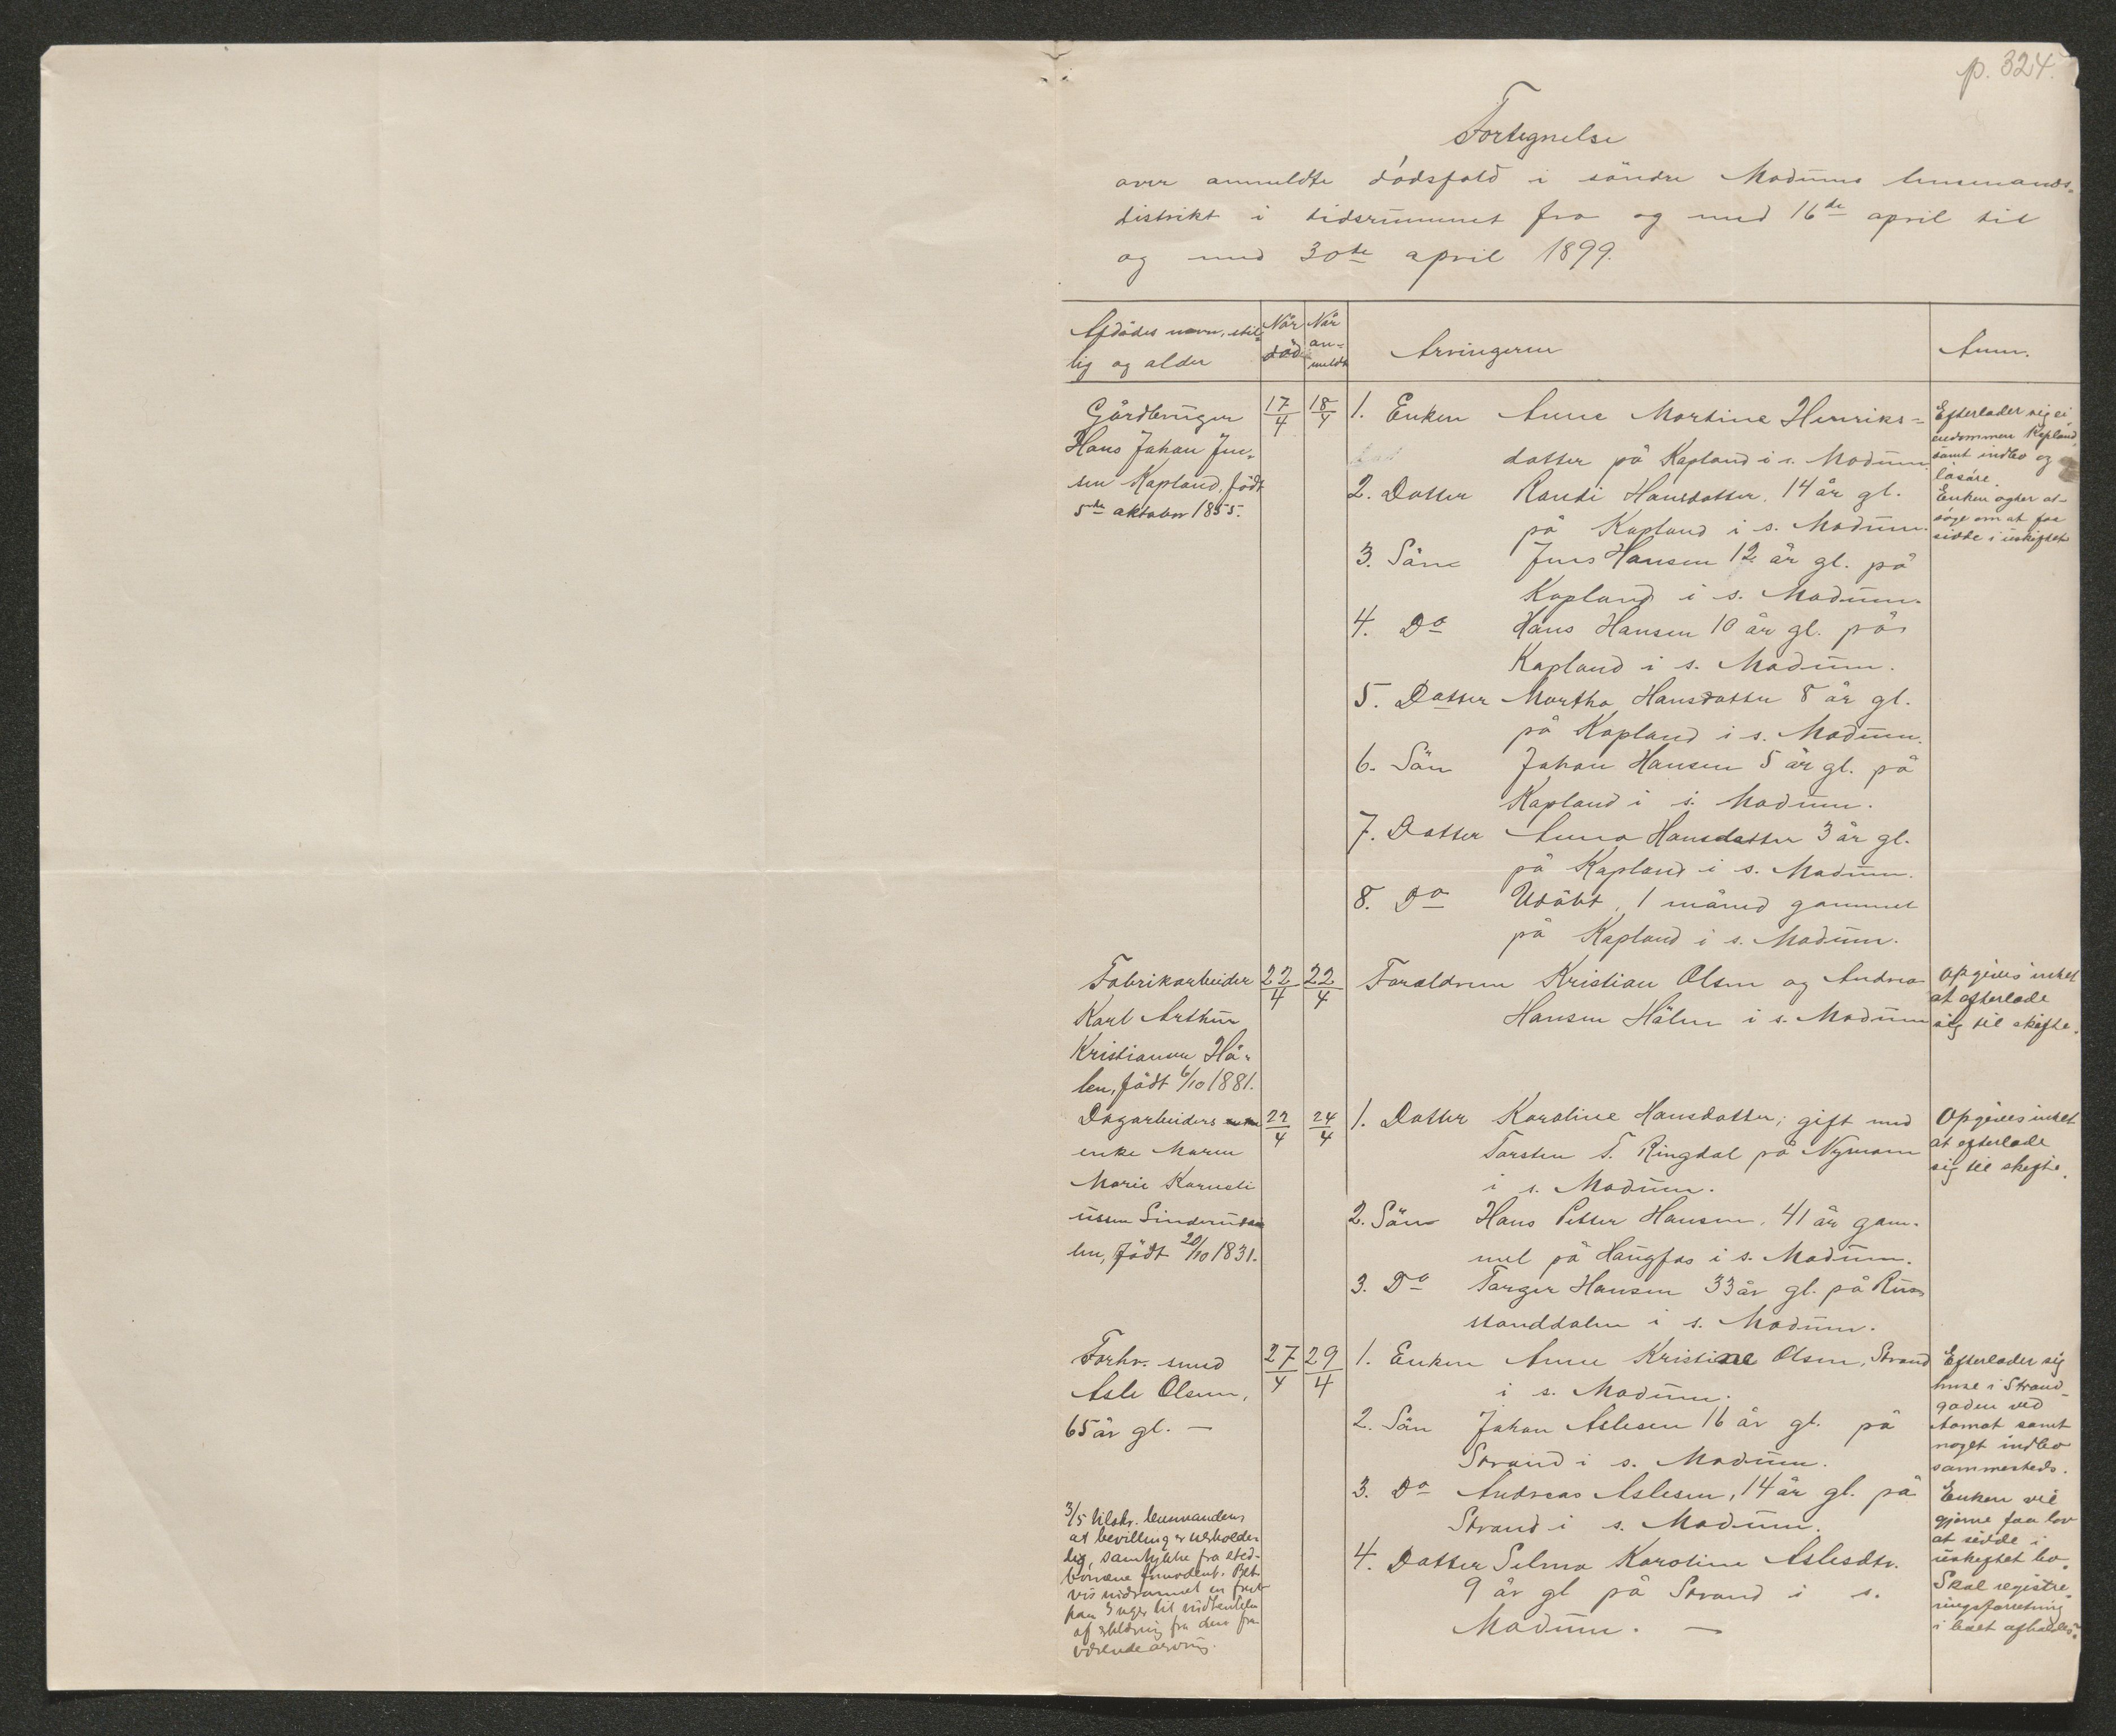 p. 324.
Fortegnelse
over anmeldte dödsfald i söndre Modums lensmands-
distrikt i tidsrummet fra og med 16de april til
og med 30te april 1899.
Afdödes navn, stil-
lig og alder
Når
död
Når
an-
meldt
Arvingerne
Anm.
Gårdbruger
Hans Johan Jen-
sen Kopland, födt
5te oktober 1855.
17/4
18/4
1. Enken Anne Martine Henriks-
datter på Kopland i s. Modum.
2. Datter Randi Hansdatter, 14 år gl.
på Kopland i s. Modum.
3. Sön Jens Hansen 12 år gl. på
Kopland i s. Modum.
4. Do Hans Hansen 10 år gl. på
Kopland i s. Modum.
5. Datter Martha Hansdatter 8 år gl.
på Kopland i s. Modum.
6. Sön Johan Hansen 5 år gl. på
Kopland i s. Modum.
7. Datter Anna Hansdatter 3 år gl.
på Kopland i s. Modum.
8. Do Udöbt, 1 måned gammel
på Kopland i s. Modum.
Efterlader sig ei
endommen Kopland
samt indbo og
lösöre.
Enken agter at
söge om at faa
sidde i uskiftet
Fabrikarbeider
Karl Arthur
Kristiansen Hå-
len, födt 6/10 1881.
22/4
22/4
Forældrene Kristian Olsen og Andrea
Hansen Hålen i s. Modum
Opgives intet
at efterlade
sig til skifte.
Dagarbeiders
enke Maren
Marie Korneli
ussen Linderudsa
len, födt 20/10 1831.
22/4
24/4
1. Datter Karoline Hansdatter; gift med
Torsten T. Ringdal på Nymoen
i s. Modum.
2. Sön Hans Petter Hansen, 41 år gam-
mel på Haugfos i s. Modum.
3. Do Torger Hansen 33 år gl. på Rus
standdalen i s. Modum.
Opgives intet
at efterlade
sig til skifte.
Forhv. smed
Asle Olsen,
65 år gl. —
27/4
29/4
1. Enken Anne Kristine Olsen, Strand
i s. Modum.
2. Sön Johan Aslesen 16 år gl. på
Strand i s. Modum.
3. Do Andreas Aslesen, 14 år gl. på
Strand i s. Modum.
4. Datter Selma Karoline Aslesdtr.
9 år gl på Strand i s.
Modum. —
Efterlader sig
huse i Strand-
gaden ved
Aamot samt
noget indbo
sammesteds.
Enken vil
gjerne faa lov
at sidde i
uskiftet bo.
Skal registre
ringsforretning
i boet afholdes?
3/5 tilskr. lensmanden,
at bevilling er uerholde-
lig, samtykke fra sted-
börnene
vis indrömmet en frist
paa 3 uger til indhentelse
af erklæring fra den fra
værende arving.